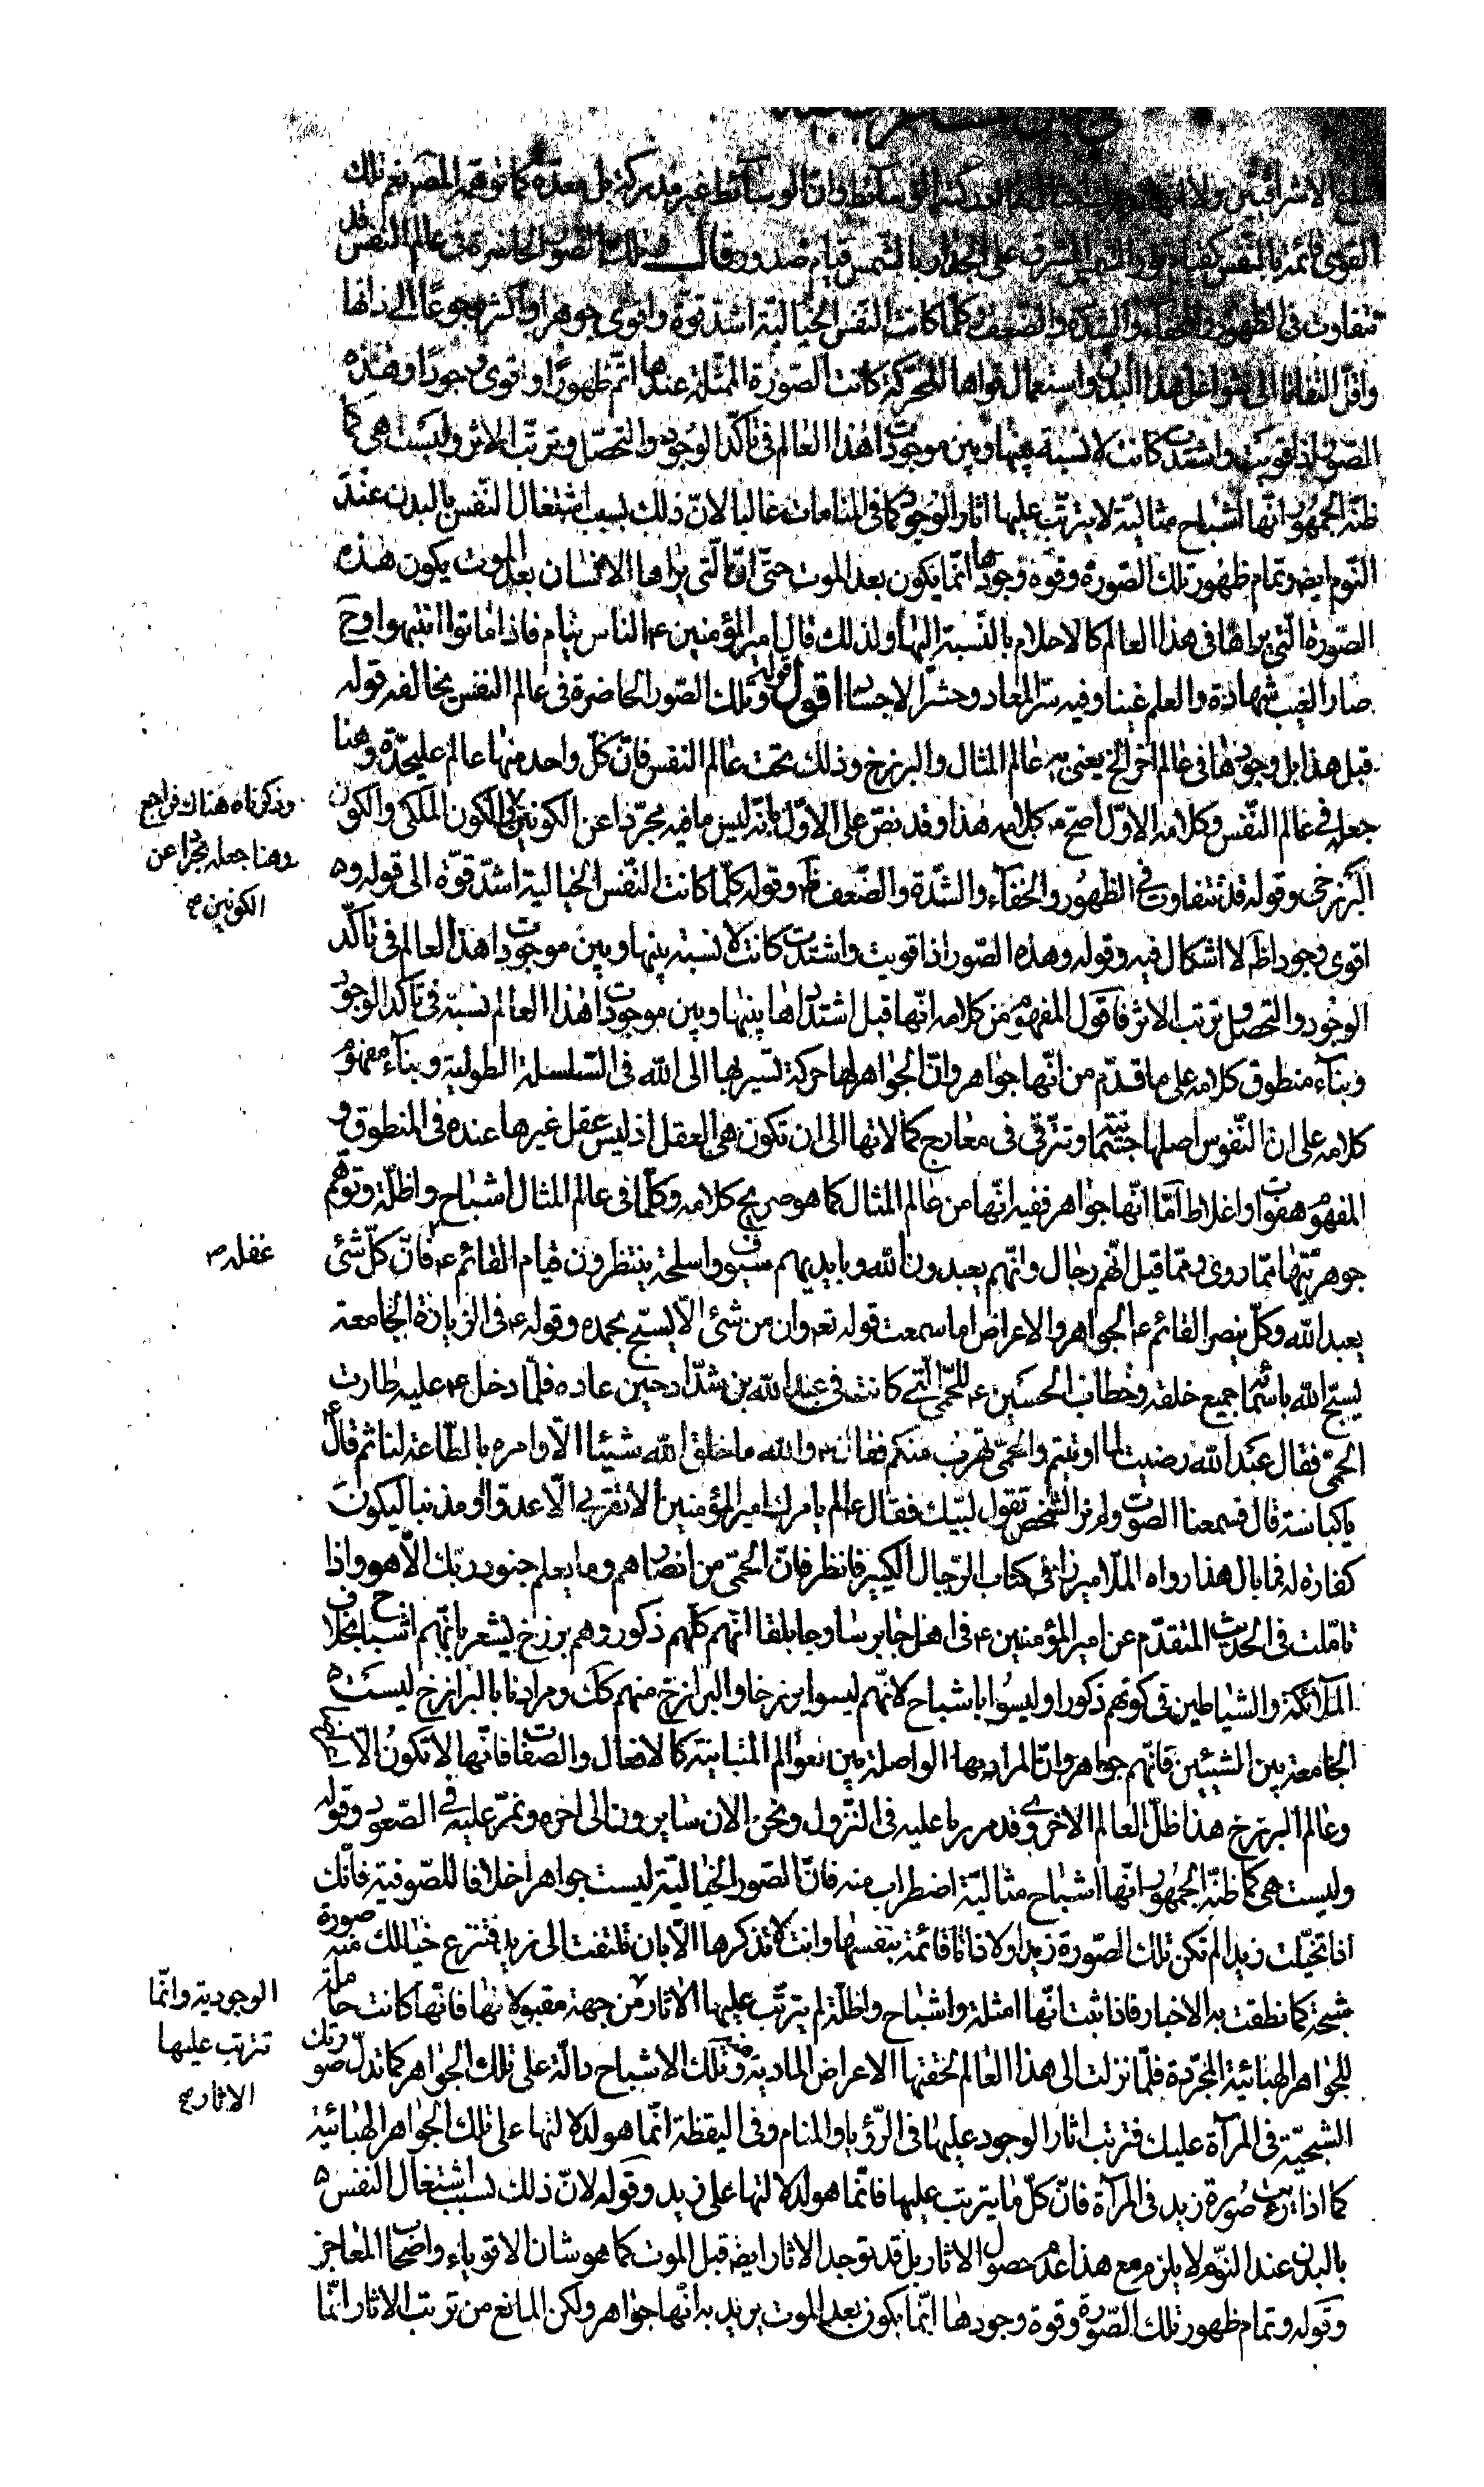 الاشراقيين ولا وان الوسائط غير مدركة بل معدة كما توهمه المص نعم تلك
القوى قائمة بالنفس كقيام نور الشمس المشرق على الجدار بالشمس قيام صدور قال وتلك الصور الحاضرة في عالم النفس قد
تتفاوت في الظهور والخفاء والشدة والضعف وكلما كانت النفس الخيالية اشد قوة واقوى جوهرا واكثر رجوعا الى ذاتها
واقل التفاتا الى شواغل هذا البدن واستعمال قواها المحركة كانت الصورة المتمثلة عندها اتم ظهورا واقوى وجودا وهذه
الصور اذا قويت واشتدت كانت لا نسبة بينها وبين موجودات هذا العالم في تأكد الوجود والتحصل وترتب الاثر وليست هي كما
ظنه الجمهور انها اشباح مثالية لا يترتب عليها اثار الوجود كما في المنامات غالبا لان ذلك بسبب اشتغال النفس بالبدن عند
النوم ايضا وتمام ظهور تلك الصورة وقوة وجودها انما يكون بعد الموت حتى ان التي يراها الانسان بعد الموت يكون هذه
الصورة التي يراها في هذا العالم كالاحلام بالنسبة اليها ولذلك قال امير المؤمنين ع الناس نيام فاذا ماتوا انتبهوا وح
صار الغيب شهادة والعلم عينا وفيه سر المعاد وحشر الاجساد اقول قوله وتلك الصور الحاضرة في عالم النفس يخالفه قوله
قبل هذا بل وجودها في عالم اخر الخ يعني به عالم المثال والبرزخ وذلك تحت عالم النفس فان كل واحد منها عالم عليحدة وهنا
جعله في عالم النفس وكلامه الاول اصح من كلامه هذا وقد نص على الاول بانه ليس ما فيه مجردا عن الكونين اي الكون الملكي والكون
وذكرناه هناك فراجع
وهنا جعله مجردا عن
الكونين صح
البرزخي وقوله قد تتفاوت في الظهور والخفاء والشدة والضعف ظ وقوله كلما كانت النفس الخيالية اشد قوة الى قوله و
اقوى وجودا ظ لا اشكال فيه وقوله وهذه الصور اذا قويت واشتدت كانت لا نسبة بينها وبين موجودات هذا العالم في تأكد
الوجود والتحصل وترتب الاثر فاقول المفهوم من كلامه انها قبل اشتدادها بينها وبين موجودات هذا العالم نسبة في تأكد الوجود
وبناء منطوق كلامه على ما قدم من انها جواهر وان الجواهر لها حركة تسير بها الى الله في السلسلة الطولية وبناء مفهوم
كلامه على ان النفوس اصلها جسمانية وتترقى في معارج كمالاتها الى ان تكون هي العقل اذ ليس عقل غيرها عنده في المنطوق و
المفهوم هفوات واغلاط اما انها جواهر ففيه انها من عالم المثال كما هو صريح كلامه وكلما في عالم المثال اشباح واظلة وتوهم
جوهريتها مما روى ومما قيل انهم رجال وانهم يعبدون الله وبايديهم سيوف واسلحة ينتظرون قيام القائم ع فان كل شئ
غفلة صح
يعبد الله وكل ينصر القائم ع الجواهر والاعراض اما سمعت قوله تعالى وان من شئ الا يسبح بحمده وقوله ع في الزيارة الجامعة
يسبح الله باسمائه جميع خلقه وخطاب الحسين ع للحمى التي كانت في عبد الله بن شداد حين عاده فلما دخل ع عليه طارت
الحمى فقال عبد الله رضيت بما اوتيتم والحمى تهرب منكم فقال ع والله ما خلق الله شيئا الا وامره بالطاعة لنا ثم قال ع
يا كباسة قال فسمعنا الصوت ولم نر الشخص تقول لبيك فقال ع الم يامرك امير المؤمنين الا تقربي الا عدوا او مذنبا ليكون
كفارة له فما بال هذا رواه الملا ميرزا في كتاب الرجال الكبير فانظر فان الحمى من انصارهم وما يعلم جنود ربك الا هو واذا
تاملت في الحديث المتقدم عن امير المؤمنين ع في اهل جابرسا وجابلقا انهم كلهم ذكور وهم برزخ يشعر بانهم اشباح بخلاف
الملائكة والشياطين في كونهم ذكورا وليسوا باشباح لانهم ليسوا برزخا والبرازخ منهم كك ومرادنا بالبرازخ ليست
الجامعة بين الشيئين فانهم جواهر وان المراد بها الواصلة بين العوالم المتباينة كالافعال والصفات فانها لا تكون الا
وعالم البرزخ هذا ظل العالم الاخروي وقد مررنا عليه في النزول ونحن الان سايرون الى اخره ونمر عليه في الصعود وقوله
وليست هي كما ظنه الجمهور انها اشباح مثالية اضطراب منه فان الصور الخيالية ليست جواهر خلافا للصوفية فانك
اذا تخيلت زيدا لم تكن تلك الصورة زيدا ولا ذاتا قائمة بنفسها وانت لا تذكرها الا بان تلتفت الى زيد فتنزع خيالك منه صورة
شبحية كما نطقت به الاخبار فاذا ثبت انها امثلة واشباح واظلة لم يترتب عليها الاثار من جهة مقبولاتها فانها كانت حاملة
الوجودية وانما
تترتب عليها
الاثار صح
للجواهر الهبائية المجردة فلما نزلت الى هذا العالم لحقتها الاعراض المادية وتلك الاشباح دالة على تلك الجواهر كما تدل صورتك
الشبحية في المرآة عليك فترتب اثار الوجود عليها في الرؤيا والمنام وفي اليقظة انما هو لدلالتها على تلك الجواهر الهبائية
كما اذا رايت صورة زيد في المرآة فان كل ما يترتب عليها فانما هو لدلالتها على زيد وقوله لان ذلك بسبب اشتغال النفس
بالبدن عند النوم لا يلزم مع هذا عدم حصول الاثار بل قد توجد الاثار ايضا قبل الموت كما هو شان الاقوياء واصحاب المعاجز
وقوله وتمام ظهور تلك الصورة وقوة وجودها انما يكون بعد الموت يريد به انها جواهر ولكن المانع من ترتب الاثار انما